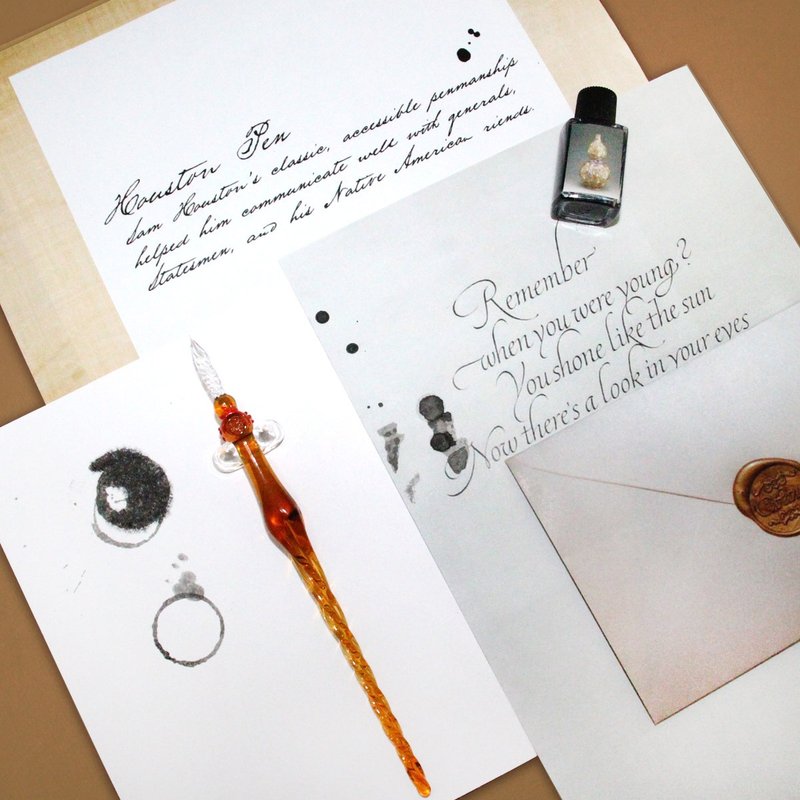 Houston Pen
Sam Houston's classic, accessible penmanship
helped him communicate well with generals,
statesmen, and his Native American riends.
Remember
when you were young?
You shone like the sun
Now there's a look in your eyes